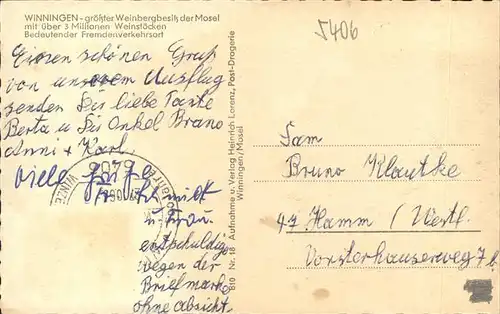 WINNINGEN - größter Weinbergbesitz der Mosel
mit über 3 Millionen Weinstöcken
Bedeutender Fremdenverkehrsort
5406
Einen schönen Gruß
von unserem Ausflug
senden Dir liebe Tante
Berta u Dir Onkel Bruno
Anni + Karl.
Viele Grüße
u. Frau.
entschuldige
wegen der
Briefmarke
ohne Absicht.
810 Nr. 18 Aufnahme u. Verlag Heinrich Lorenz, Post-Drogerie
Winningen/Mosel
Fam
Bruno Klautke
47 Hamm / Westf.
Vorsterhauserweg 7b